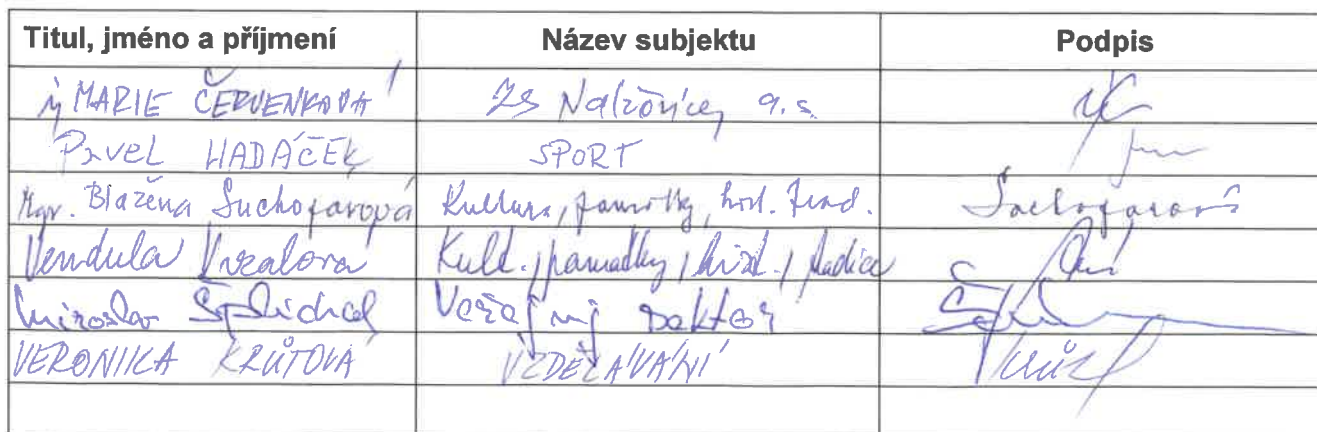 Titul, jméno a příjmení Název subjektu Podpis
MARIE ČERVENKOVÁ ZS Nalžovice, a.s.
PAVEL HADÁČEK SPORT
Mgr. Blažena Suchofarová Kultura, památky, hist. trad. Suchofarová
Vendula Kult., památky, hist., tradice
Miroslav Šplíchal Veřejný sektor
VERONIKA KRŮTOVÁ VZDĚLÁVÁNÍ